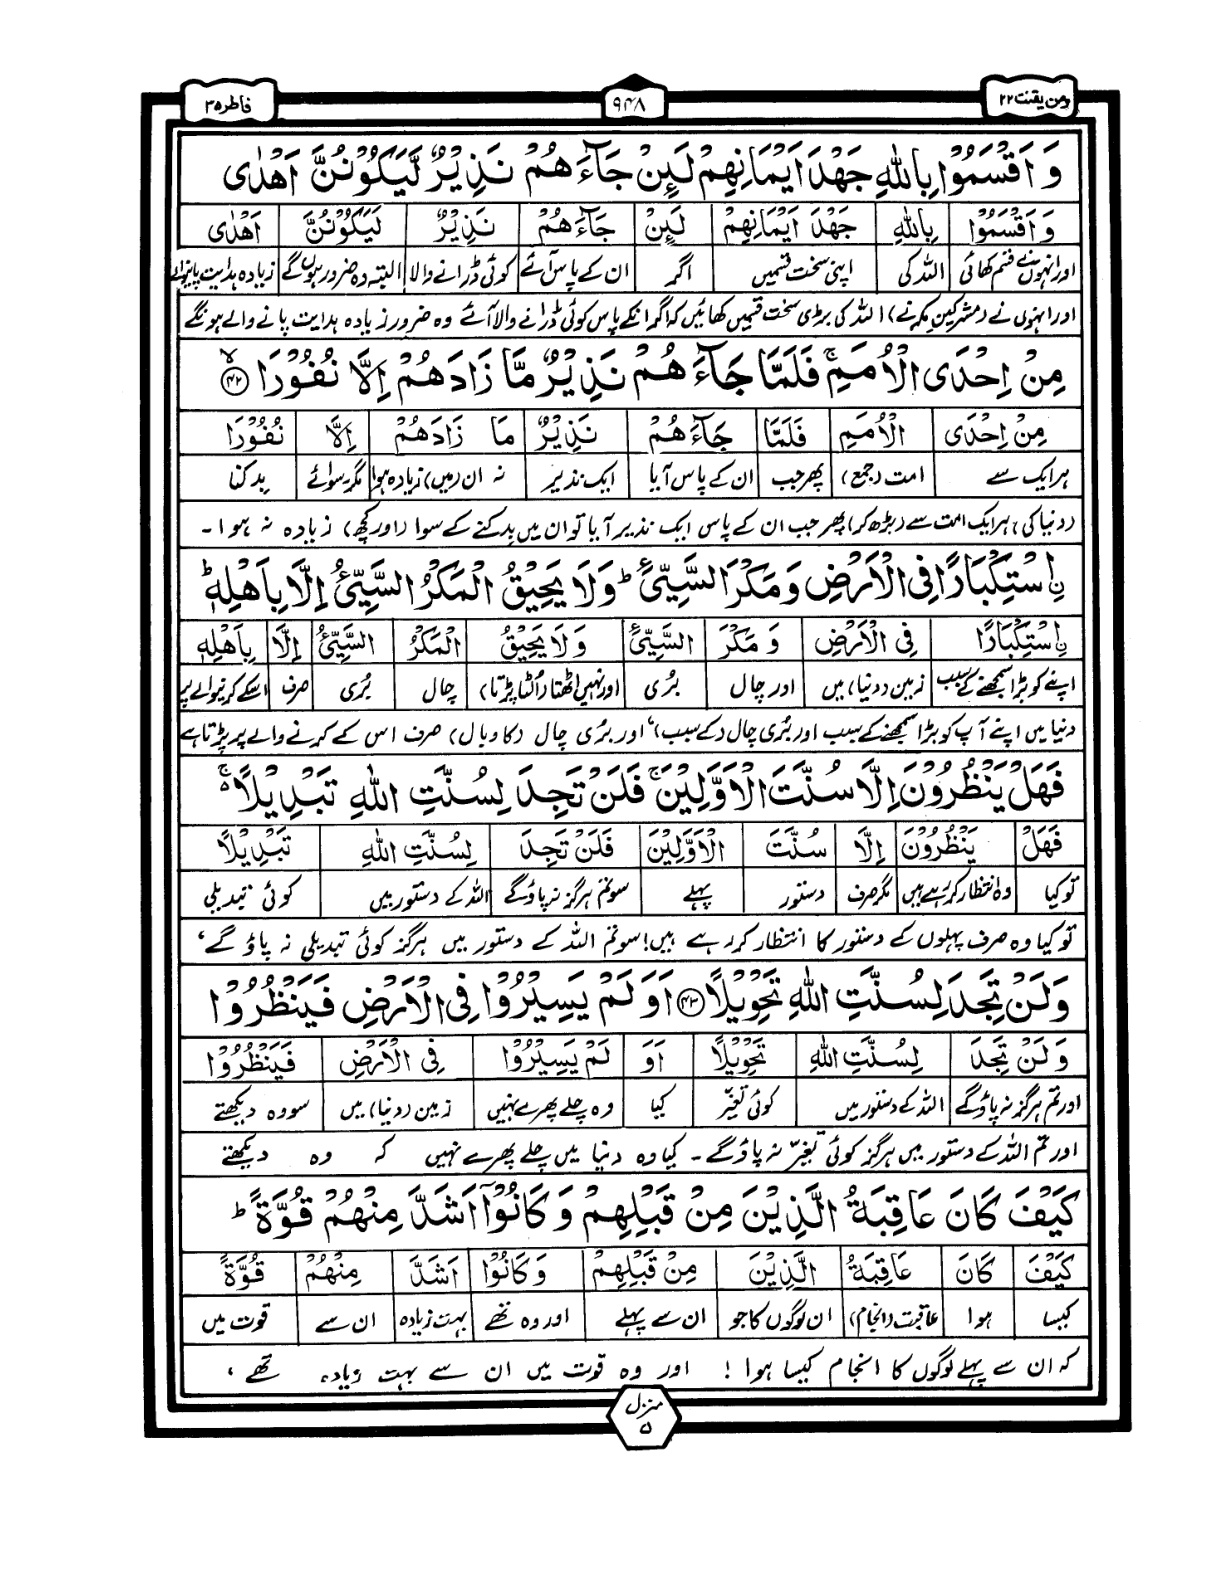 ومن یقنت ۲۲
۹۴۸
فاطر ۳۵
وَ اَقْسَمُوْا بِاللّٰهِ جَهْدَ اَیْمَانِهِمْ لَىِٕنْ جَآءَهُمْ نَذِیْرٌ لَّیَكُوْنُنَّ اَهْدٰی
وَ اَقْسَمُوْا بِاللّٰهِ جَهْدَ اَیْمَانِهِمْ لَىِٕنْ جَآءَهُمْ نَذِیْرٌ لَیَكُوْنُنَّ اَهْدٰی
اور انہوں نے قسم کھائی اللہ کی اپنی سخت قسمیں اگر ان کے پاس آئے کوئی ڈرانے والا البتہ وہ ضرور ہوں گے زیادہ ہدایت پانیوالے
اور انہوں نے (مشرکین مکہ نے) اللہ کی بڑی سخت قسمیں کھائیں کہ اگر انکے پاس کوئی ڈرانے والا آئے وہ ضرور زیادہ ہدایت پانے والے ہونگے
مِنْ اِحْدَی الْاُمَمِ ۚ فَلَمَّا جَآءَهُمْ نَذِیْرٌ مَّا زَادَهُمْ اِلَّا نُفُوْرَا ۙ﴿۴۲﴾
مِنْ اِحْدَی الْاُمَمِ فَلَمَّا جَآءَهُمْ نَذِیْرٌ مَا زَادَهُمْ اِلَّا نُفُوْرَا
ہر ایک سے امت (جمع) پھر جب ان کے پاس آیا ایک نذیر نہ ان (میں) زیادہ ہوا مگر۔سوائے بدکنا
(دنیا کی) ہر ایک امت سے (بڑھ کر) پھر جب ان کے پاس ایک نذیر آیا تو ان میں بدکنے کے سوا (اور کچھ) زیادہ نہ ہوا ۔
ِ۟اسْتِكْبَارًا فِی الْاَرْضِ وَ مَكْرَ السَّیِّئِ ؕ وَلَا یَحِیْقُ الْمَكْرُ السَّیِّئُ اِلَّا بِاَهْلِهٖ ؕ
ِ۟اسْتِكْبَارًا فِی الْاَرْضِ وَ مَكْرَ السَّیِّئِ وَلَا یَحِیْقُ الْمَكْرُ السَّیِّئُ اِلَّا بِاَهْلِهٖ
اپنے کو بڑا سمجھنے کے سبب زمین (دنیا) میں اور چال بُری اور نہیں اٹھتا (اُلٹا پڑتا) چال بُری صرف اسکے کرنیوالے پر
دنیا میں اپنے آپ کو بڑا سمجھنے کے سبب اور بُری چال (کے سبب)، اور بُری چال (کا وبال) صرف اس کے کرنے والے پر پڑتا ہے
فَهَلْ یَنْظُرُوْنَ اِلَّا سُنَّتَ الْاَوَّلِیْنَ ۚ فَلَنْ تَجِدَ لِسُنَّتِ اللّٰهِ تَبْدِیْلًا ۚ۬
فَهَلْ یَنْظُرُوْنَ اِلَّا سُنَّتَ الْاَوَّلِیْنَ فَلَنْ تَجِدَ لِسُنَّتِ اللّٰهِ تَبْدِیْلًا
تو کیا وہ انتظار کر رہے ہیں مگر صرف دستور پہلے سو تم ہرگز نہ پاؤ گے اللہ کے دستور میں کوئی تبدیلی
تو کیا وہ صرف پہلوں کے دستور کا انتظار کر رہے ہیں! سو تم اللہ کے دستور میں ہرگز کوئی تبدیلی نہ پاؤ گے،
وَلَنْ تَجِدَ لِسُنَّتِ اللّٰهِ تَحْوِیْلًا ﴿۴۳﴾ اَوَ لَمْ یَسِیْرُوْا فِی الْاَرْضِ فَیَنْظُرُوْا
وَ لَنْ تَجِدَ لِسُنَّتِ اللّٰهِ تَحْوِیْلًا اَوَ لَمْ یَسِیْرُوْا فِی الْاَرْضِ فَیَنْظُرُوْا
اور تم ہرگز نہ پاؤ گے اللہ کے دستور میں کوئی تغیّر کیا وہ چلے پھرے نہیں زمین (دنیا) میں سو وہ دیکھتے
اور تم اللہ کے دستور میں ہرگز کوئی تغیّر نہ پاؤ گے ۔ کیا وہ دنیا میں چلے پھرے نہیں کہ وہ دیکھتے
كَیْفَ كَانَ عَاقِبَةُ الَّذِیْنَ مِنْ قَبْلِهِمْ وَ كَانُوْۤا اَشَدَّ مِنْهُمْ قُوَّةً ؕ
كَیْفَ كَانَ عَاقِبَةُ الَّذِیْنَ مِنْ قَبْلِهِمْ وَ كَانُوْا اَشَدَّ مِنْهُمْ قُوَّةً
کیسا ہوا عاقبت (انجام) ان لوگوں کا جو ان سے پہلے اور وہ تھے بہت زیادہ ان سے قوت میں
کہ ان سے پہلے لوگوں کا انجام کیسا ہوا ! اور وہ قوت میں ان سے بہت زیادہ تھے ،
منزل ۵